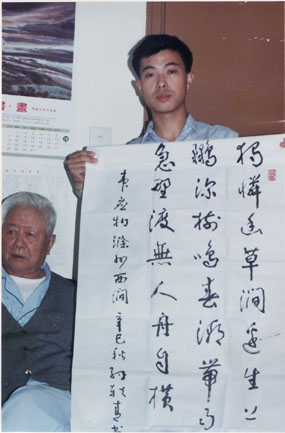 獨憐幽草澗邊生上
鸝深樹鳴春潮帶雨
急野渡無人舟自橫
韋應物滁州西澗 辛巳秋 孫軼青書
畫